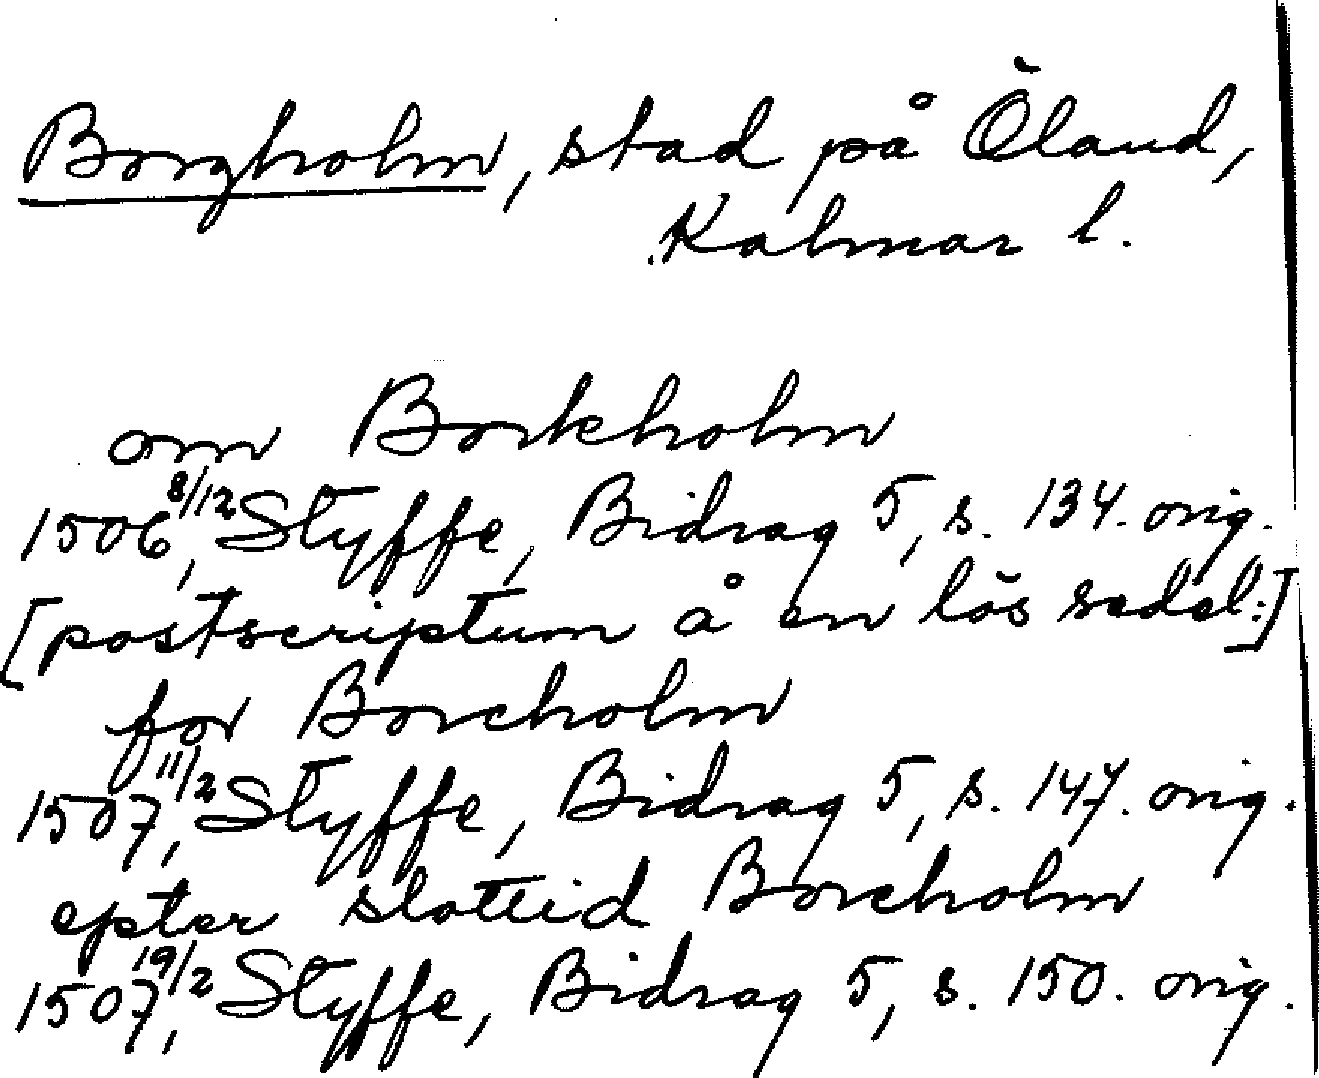 Borgholm, stad på Öland,
Kalmar l.
om Borkholm
1506 8/12, Styffe, Bidrag 5, s. 134. orig.
[postscriptum å en lös sedel.]
for Borcholm
1507 11/2, Styffe, Bidrag 5, s. 147. orig.
epter slottid Borcholm
1507 19/2, Styffe, Bidrag 5, s. 150. orig.